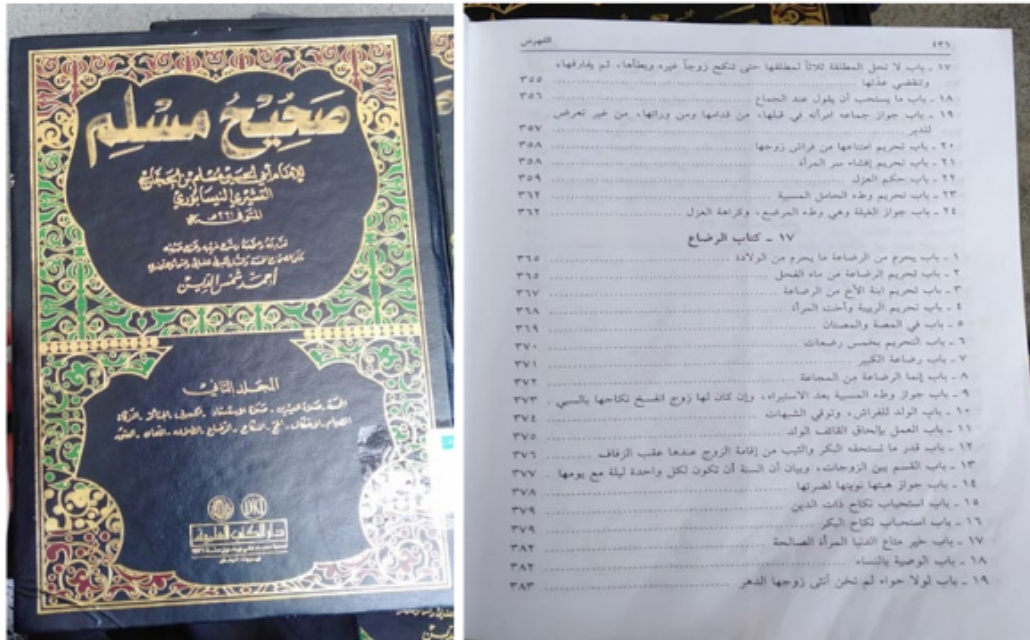 صحيح مسلم
للإمام أبي الحسين مسلم بن الحجاج
القشيري النيسابوري
المتوفى ٢٦١ هـ
أحمد شمس الدين
المجلد الثاني
الجمعة - صلاة العيدين - صلاة الاستسقاء - الكسوف - الجنائز - الزكاة
الصيام - الاعتكاف - الحج - النكاح - الرضاع - الطلاق - اللعان - العتق
DKI
دار الكتب العلمية
٤٣٦
الفهرس
١٧ - باب لا تحل المطلقة ثلاثاً لمطلقها حتى تنكح زوجاً غيره ويطأها، ثم يفارقها،
وتنقضي عدتها ٣٥٥
١٨ - باب ما يستحب أن يقول عند الجماع ٣٥٦
١٩ - باب جواز جماعه امرأته في قبلها، من قدامها ومن ورائها، من غير تعرض
للدبر ٣٥٧
٢٠ - باب تحريم امتناعها من فراش زوجها ٣٥٨
٢١ - باب تحريم إفشاء سر المرأة ٣٥٨
٢٢ - باب حكم العزل ٣٥٩
٢٣ - باب تحريم وطء الحامل المسبية ٣٦٢
٢٤ - باب جواز الغيلة وهي وطء المرضع، وكراهة العزل ٣٦٢
١٧ - كتاب الرضاع
١ - باب يحرم من الرضاعة ما يحرم من الولادة ٣٦٥
٢ - باب تحريم الرضاعة من ماء الفحل ٣٦٥
٣ - باب تحريم ابنة الأخ من الرضاعة ٣٦٧
٤ - باب تحريم الربيبة وأخت المرأة ٣٦٨
٥ - باب في المصة والمصتان ٣٦٩
٦ - باب التحريم بخمس رضعات ٣٧٠
٧ - باب رضاعة الكبير ٣٧١
٨ - باب إنما الرضاعة من المجاعة ٣٧٢
٩ - باب جواز وطء المسبية بعد الاستبراء، وإن كان لها زوج انفسخ نكاحها بالسبي ٣٧٣
١٠ - باب الولد للفراش، وتوقي الشبهات ٣٧٤
١١ - باب العمل بإلحاق القائف الولد ٣٧٥
١٢ - باب قدر ما تستحقه البكر والثيب من إقامة الزوج عندها عقب الزفاف ٣٧٦
١٣ - باب القسم بين الزوجات، وبيان أن السنة أن تكون لكل واحدة ليلة مع يومها ٣٧٧
١٤ - باب جواز هبتها نوبتها لضرتها ٣٧٨
١٥ - باب استحباب نكاح ذات الدين ٣٧٩
١٦ - باب استحباب نكاح البكر ٣٧٩
١٧ - باب خير متاع الدنيا المرأة الصالحة ٣٨٢
١٨ - باب الوصية بالنساء ٣٨٢
١٩ - باب لولا حواء لم تخن أنثى زوجها الدهر ٣٨٣